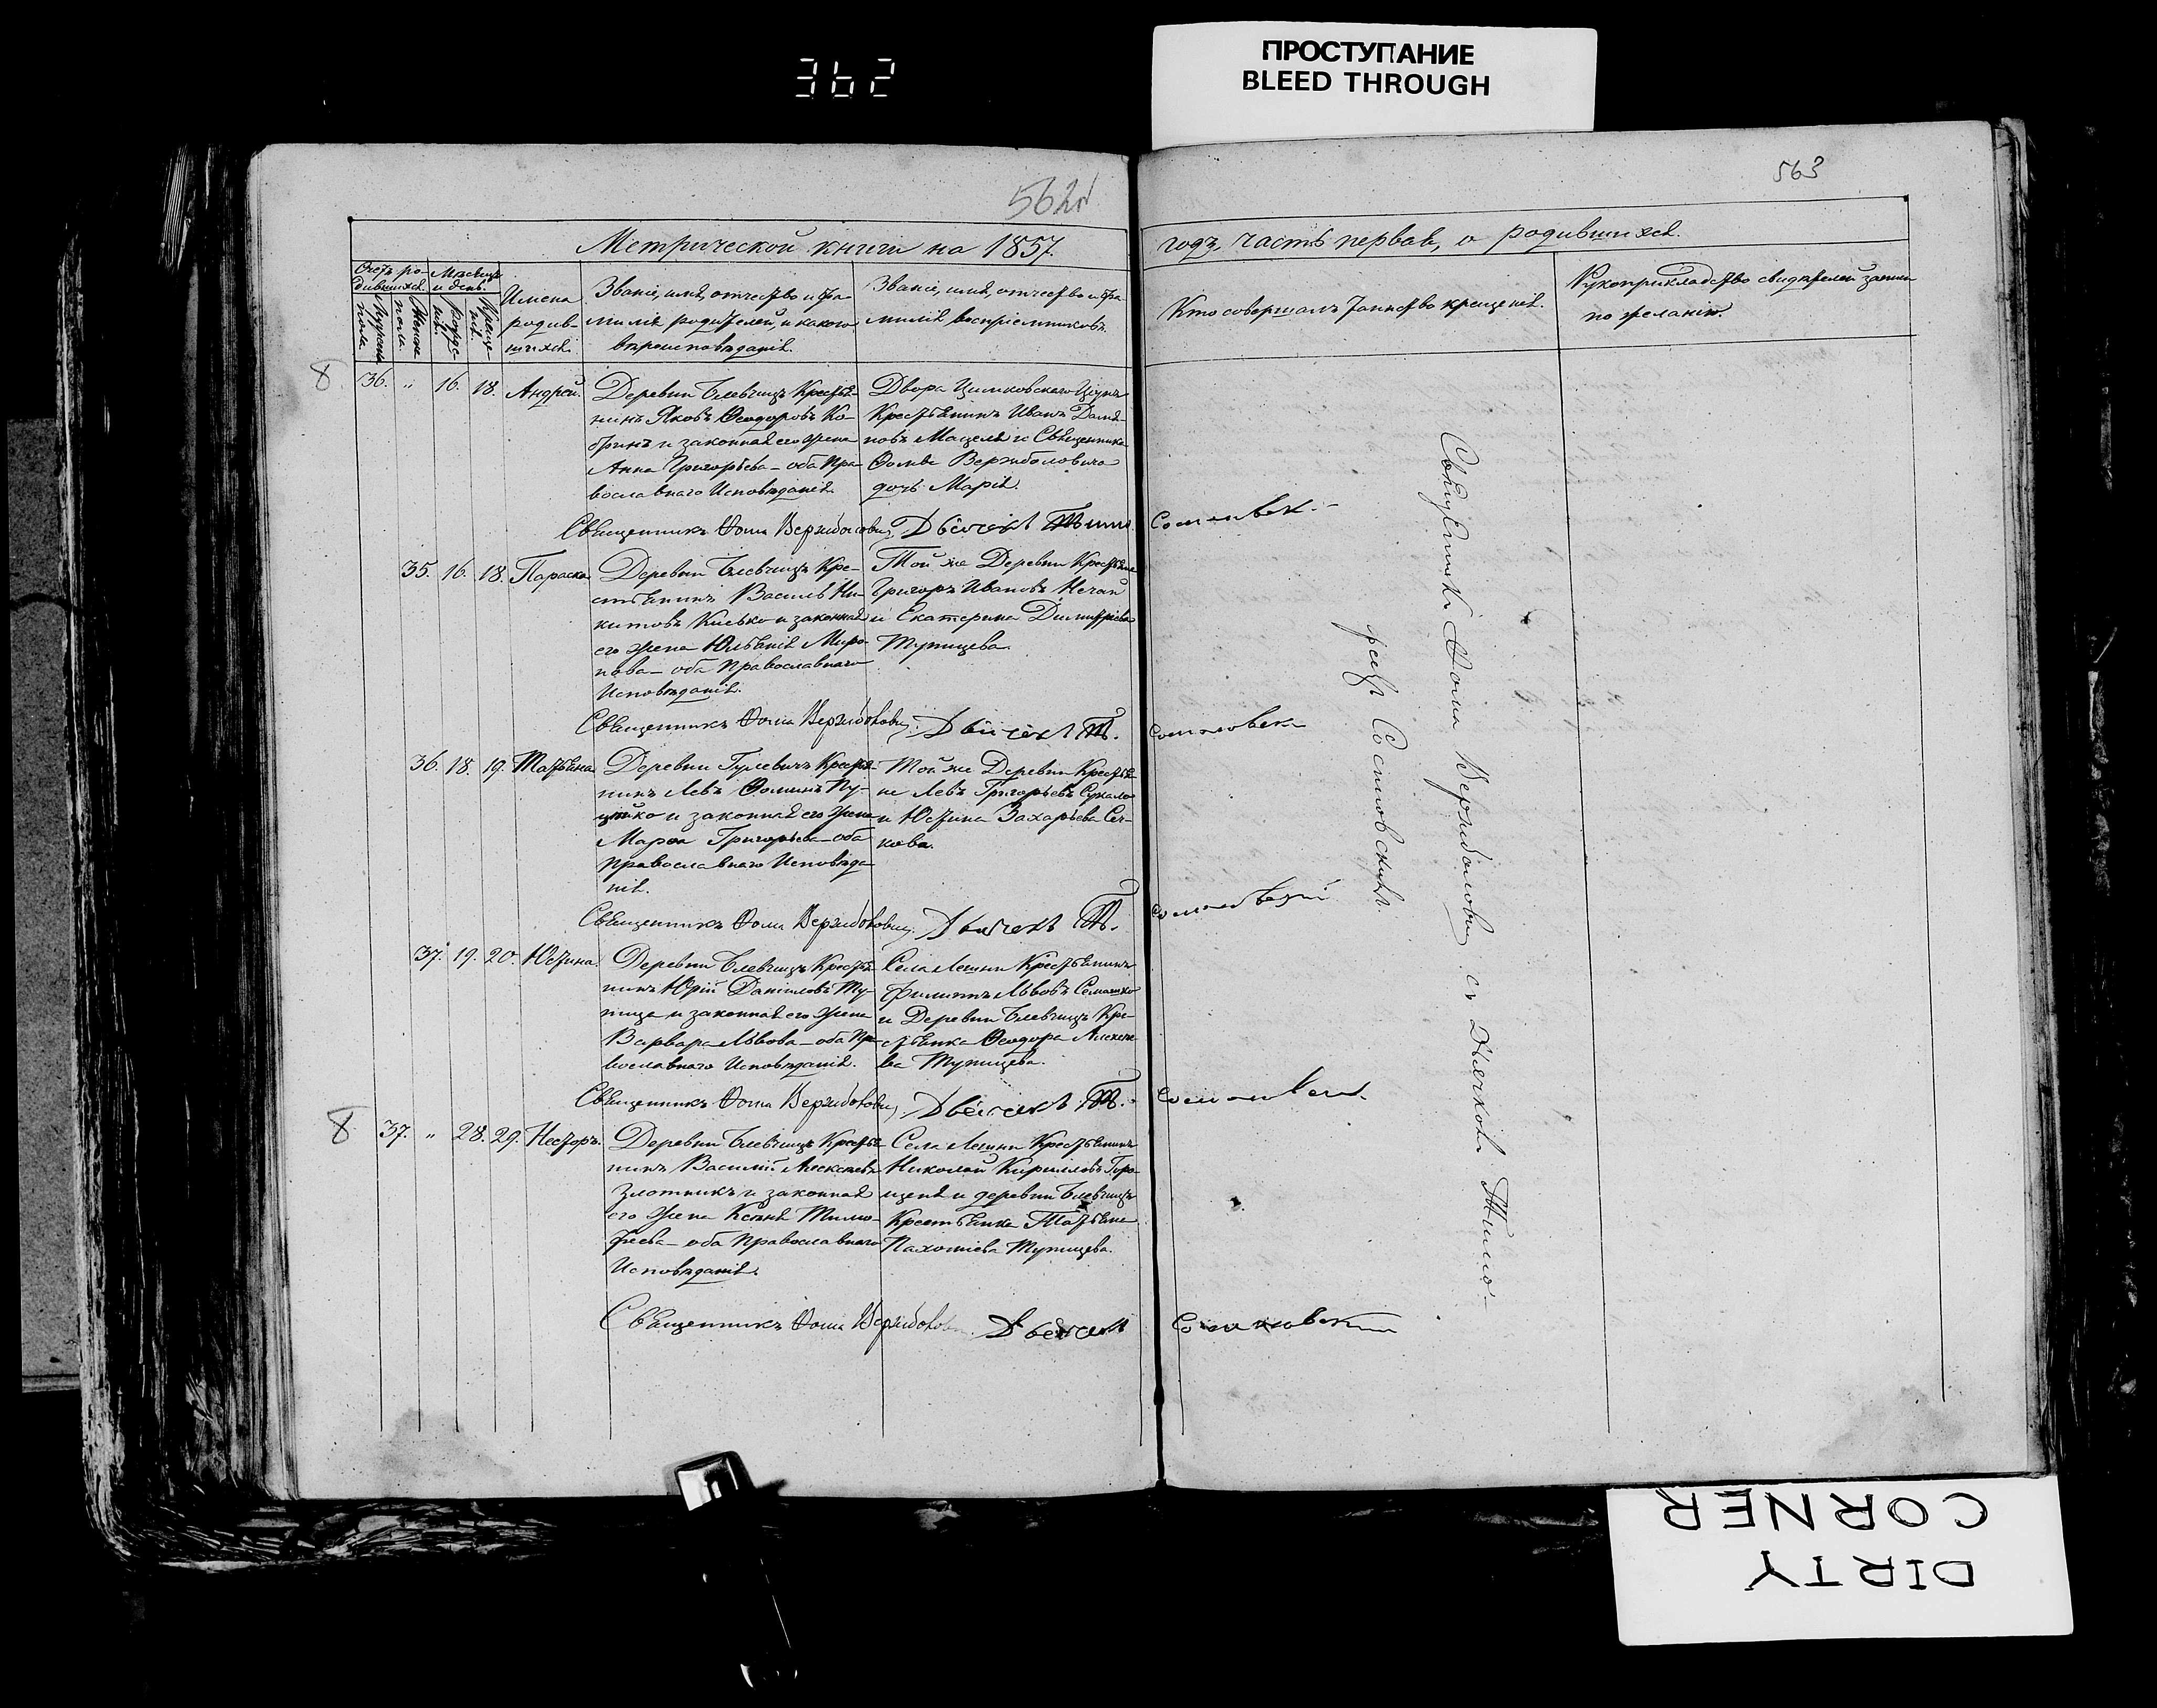 362
ПРОСТУПАНИЕ
BLEED THROUGH
562
563
Метрической книги на 1857.
годъ, часть первая, о родившихся.
Счетъ ро-
дившихся.
Мужеска
пола.
Женска
пола.
Мѣсяцъ
и день.
Рожде-
нія.
Креще-
нія.
Имена
родив-
шихся.
Званіе, имя, отчество и фа-
милія родителей, и какого
вѣроисповѣданія.
Званіе, имя, отчество и фа-
милія воспріемниковъ.
Кто совершалъ таинство крещенія.
Рукоприкладство свидѣтелей записи
по желанію.
8.
36. " 16. 18. Андрей.
Деревни Блевчицъ Крестья-
нинъ Яковъ Ѳеодоровъ Ко-
бринъ и законная его жена
Анна Григорьева - оба Пра-
вославнаго Исповѣданія.
Двора Цимковскаго
Крестьянинъ Иванъ Дамя-
новъ Мацеля и Священника
Ѳомы Вержболовича
дочь Марія.
Священникъ Ѳома Вержболовичъ Дьячекъ Тимо.
35. 16. 18. Параска.
Деревни Блевчицъ Кре-
стьянинъ Василь Ни-
китовъ Кисько и законная
его жена Юльянія Миро-
нова - оба Православнаго
Исповѣданія.
Той же Деревни Крестьяне
Григоръ Ивановъ Нечай
и Екатерина Димитріева
Тупицева.
Священникъ Ѳома Вержболовичъ. Дьячекъ Т.
36. 18. 19. Татьяна.
Деревни Гулевичъ Крестья-
нинъ Левъ Ѳоминъ Пу-
цейко и законная его жена
Марѳа Григорьева - оба
Православнаго Исповѣда-
нія.
Той же Деревни Крестья-
не Левъ Григорьевъ Сукало
и Юстина Захарьева Сен-
кова.
Священникъ Ѳома Вержболовичъ. Дьячекъ Т.
37. 19. 20. Юстина.
Деревни Блевчицъ Крестья-
нинъ Юрій Даніиловъ Ту-
пица и законная его жена
Варвара Львова - оба Пра-
вославнаго Исповѣданія.
Села Лешни Крестьянинъ
Филиппъ Львовъ Семашко
и Деревни Блевчицъ Кре-
стьянка Ѳеодора Алексѣе-
ва Тупицева.
Священникъ Ѳома Вержболовичъ. Дьячекъ Т.
8.
37. " 28. 29. Несторъ.
Деревни Блевчицъ Крестья-
нинъ Василій Алексѣевъ
Злотникъ и законная
его жена Ксенія Тимо-
феева - оба Православнаго
Исповѣданія.
Села Лешни Крестьянинъ
Николай Кирилловъ
и деревни Блевчицъ
Крестьянка Татьяна
Пахоміева Тупицева.
Священникъ Ѳома Вержболовичъ. Дьячекъ
Священникъ Ѳома Вержболовичъ съ Дьячкомъ Тимо-
Сосновскимъ.
DIRTY
CORNER